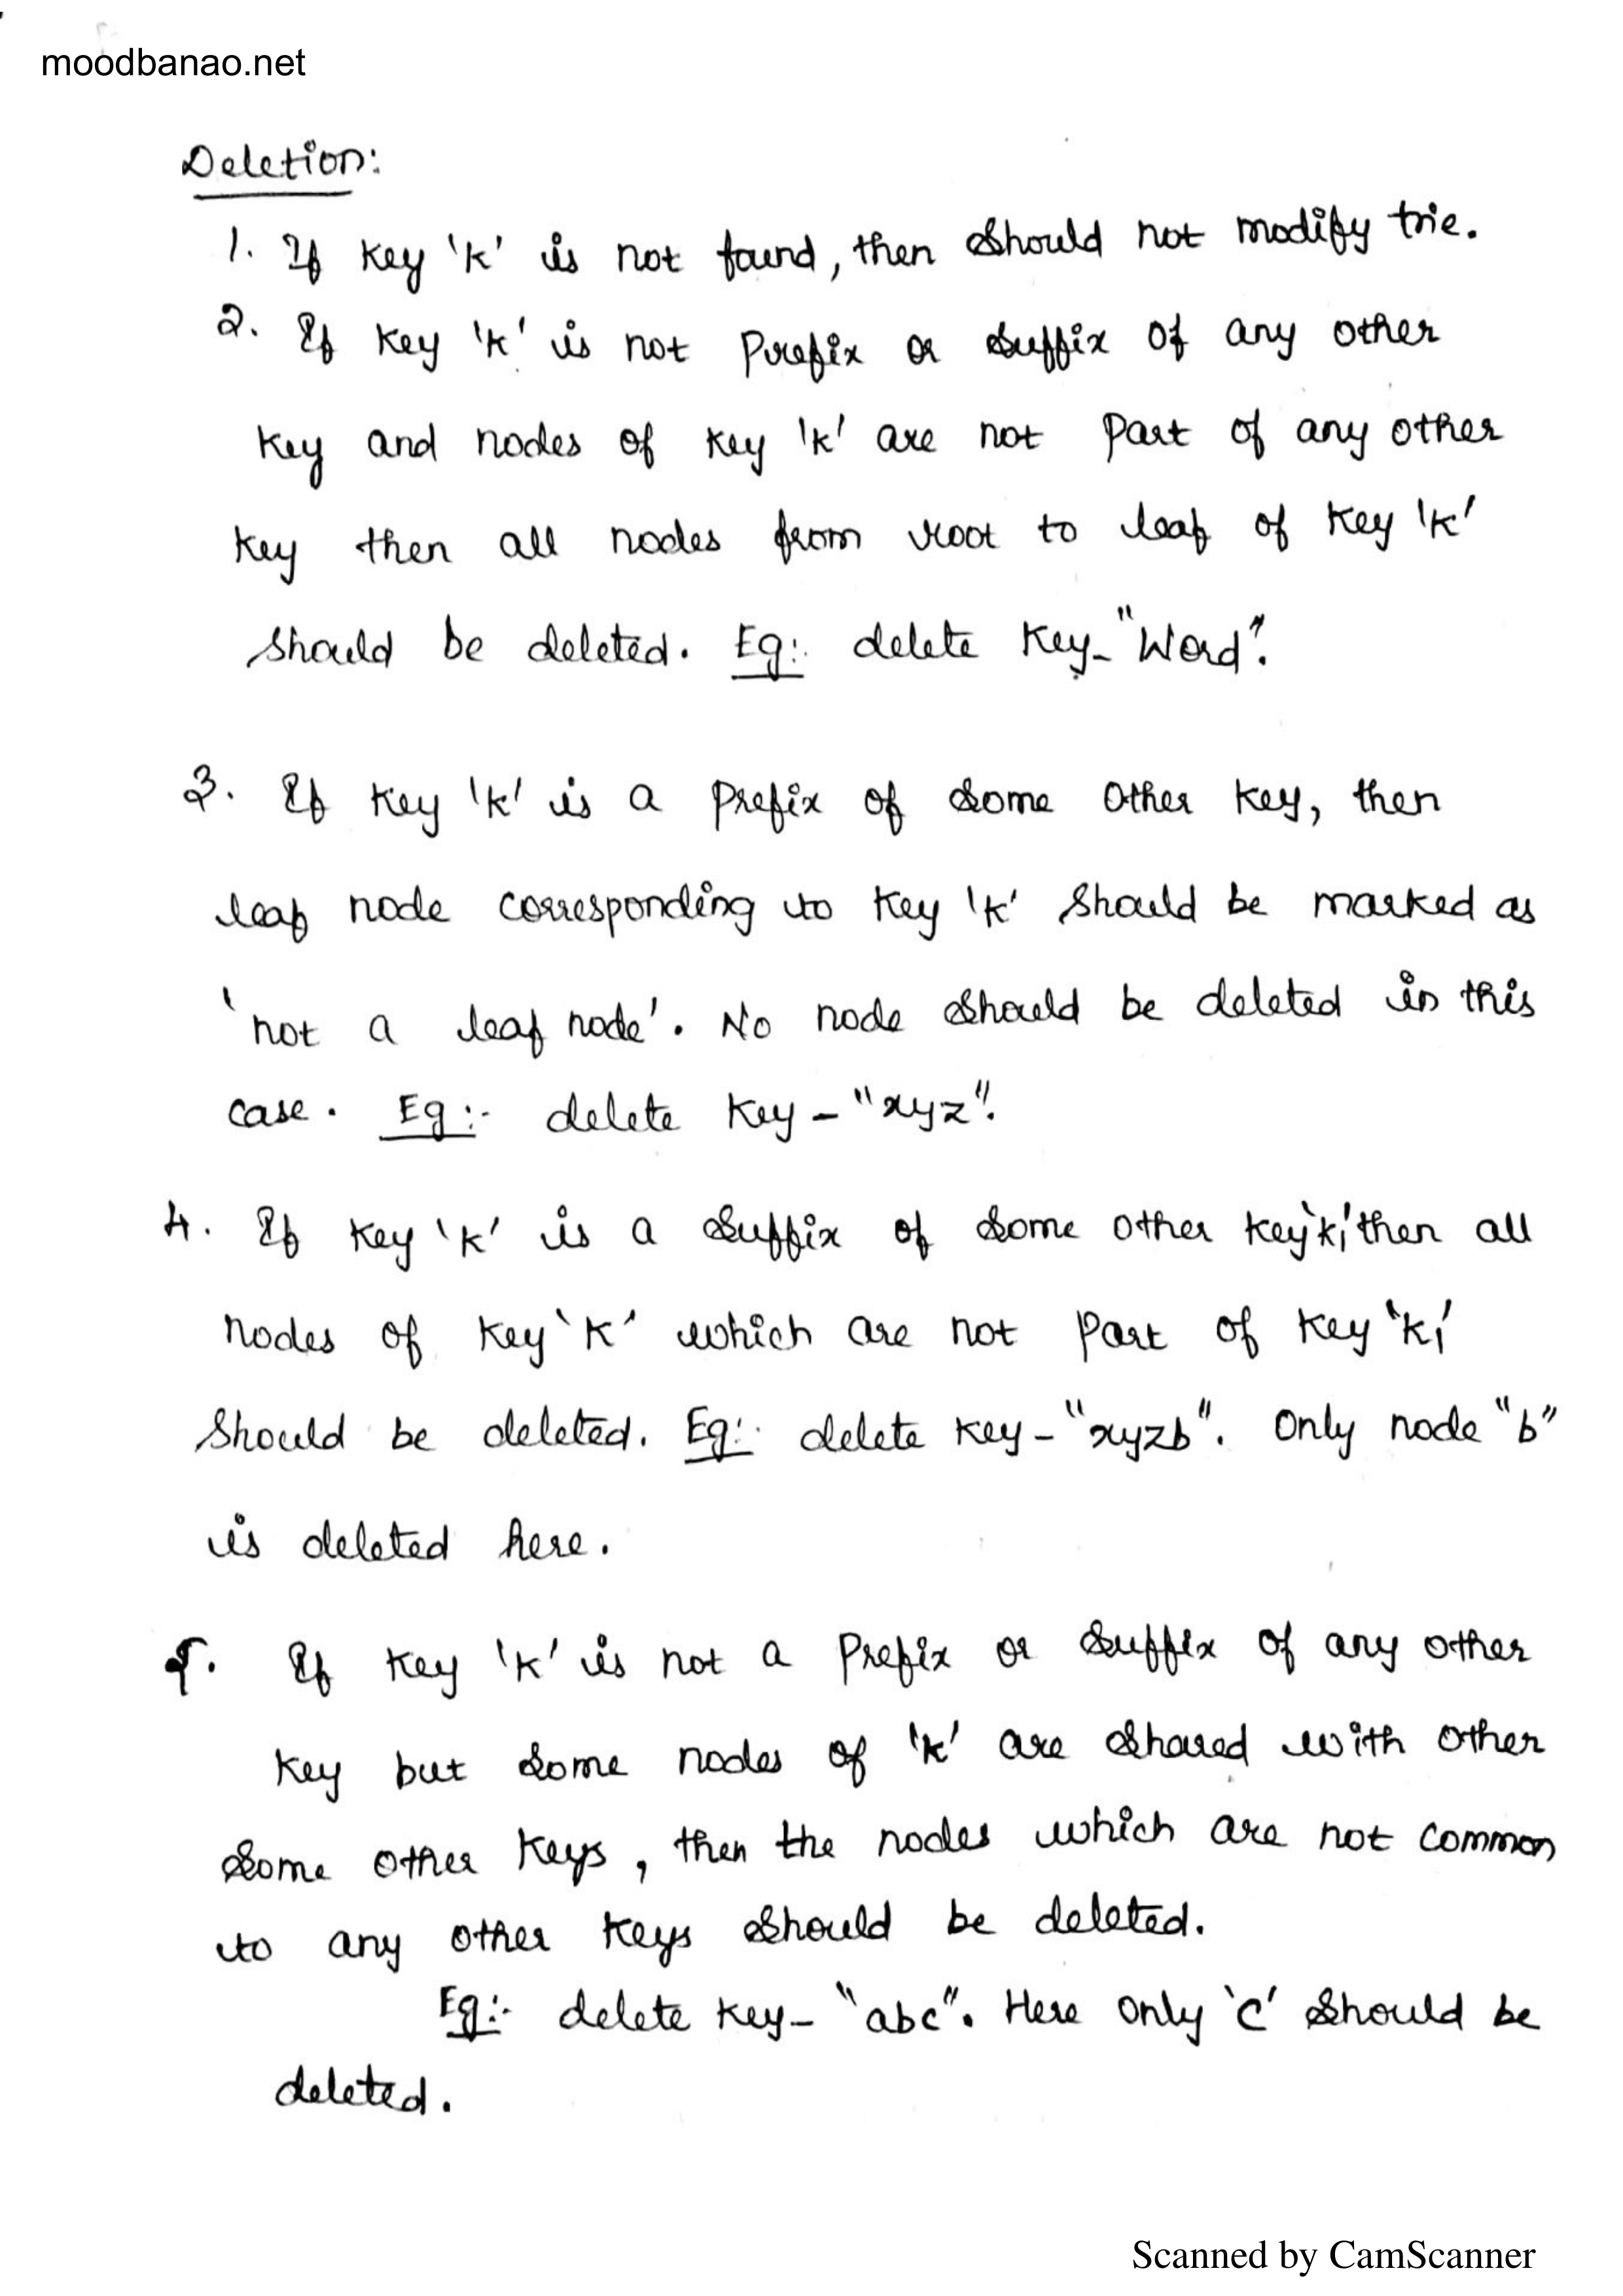 moodbanao.net
Deletion:
1. If key 'k' is not found, then should not modify trie.
2. If key 'k' is not Prefix or suffix of any other
key and nodes of key 'k' are not part of any other
key then all nodes from root to leaf of key 'k'
should be deleted. Eg:- delete key-"Word".
3. If key 'k' is a prefix of some other key, then
leaf node corresponding to key 'k' should be marked as
'not a leaf node'. No node should be deleted in this
case. Eg:- delete key - "xyz".
4. If key 'k' is a suffix of some other key 'k,' then all
nodes of key 'k' which are not part of key 'k,'
should be deleted. Eg:- delete key - "xyzb". Only node "b"
is deleted here.
5. If key 'k' is not a Prefix or suffix of any other
key but some nodes of 'k' are shared with other
some other keys, then the nodes which are not common
to any other keys should be deleted.
Eg:- delete key - "abc". Here only 'c' should be
deleted.
Scanned by CamScanner